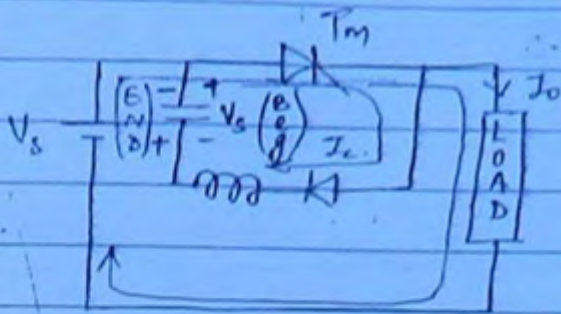 Tm
Vs
(END)
- +
+ -
Vs
(Beg)
Ic
Io
LOAD